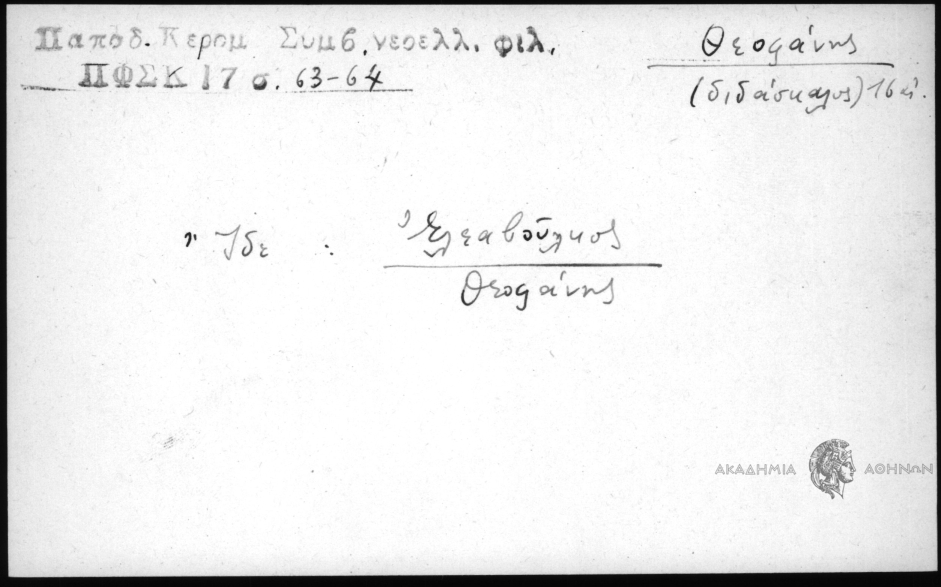 Παποδ. Κεραμ Συμβ. νεοελλ. φιλ.
ΠΦΣΚ 17 σ. 63-64
Θεοφάνης
(διδάσκαλος) 16 αἰ.
Ἴδε : Ἐλεαβοῦλκος
Θεοφάνης
ΑΚΑΔΗΜΙΑ ΑΘΗΝΩΝ